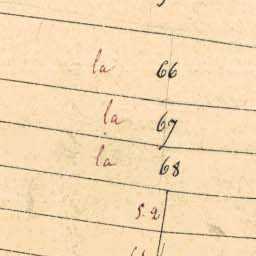 la 66
la 67
la 68
5.2